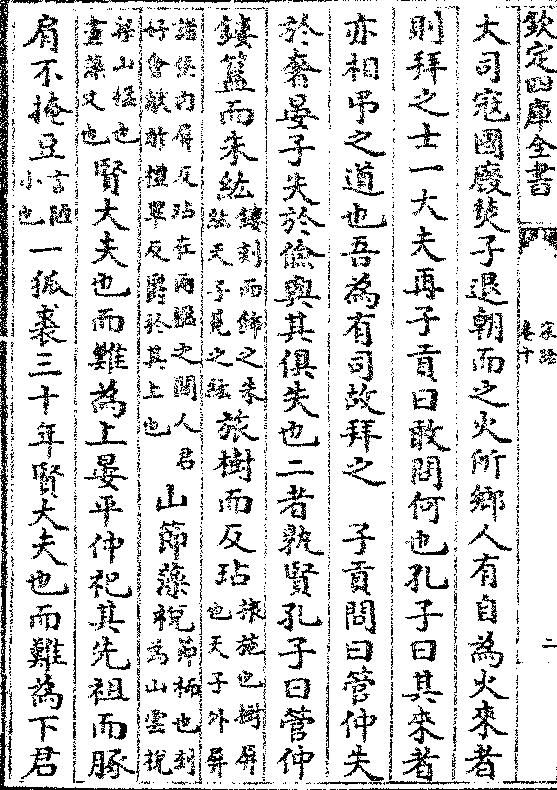 欽定四庫全書
家語
卷十
二
大司寇國廐焚子退朝而之火所鄉人有自為火來者
則拜之士一大夫再子貢曰敢問何也孔子曰其來者
亦相吊之道也吾為有司故拜之　子貢問曰管仲失
於奢晏子失於儉與其俱失也二者孰賢孔子曰管仲
鏤簋而朱紘鏤刻而飾之朱紘天子冕之紘旅樹而反玷旅施也樹屏也天子外屏
諸侯内屏反玷在兩楹之間人君好會獻酢禮畢反爵於其上也山節藻梲節栭也刻為山雲梲
梁山楹也畫藻文也賢大夫也而難為上晏平仲祀其先祖而豚
肩不掩豆言陋小也一狐裘三十年賢大夫也而難為下君